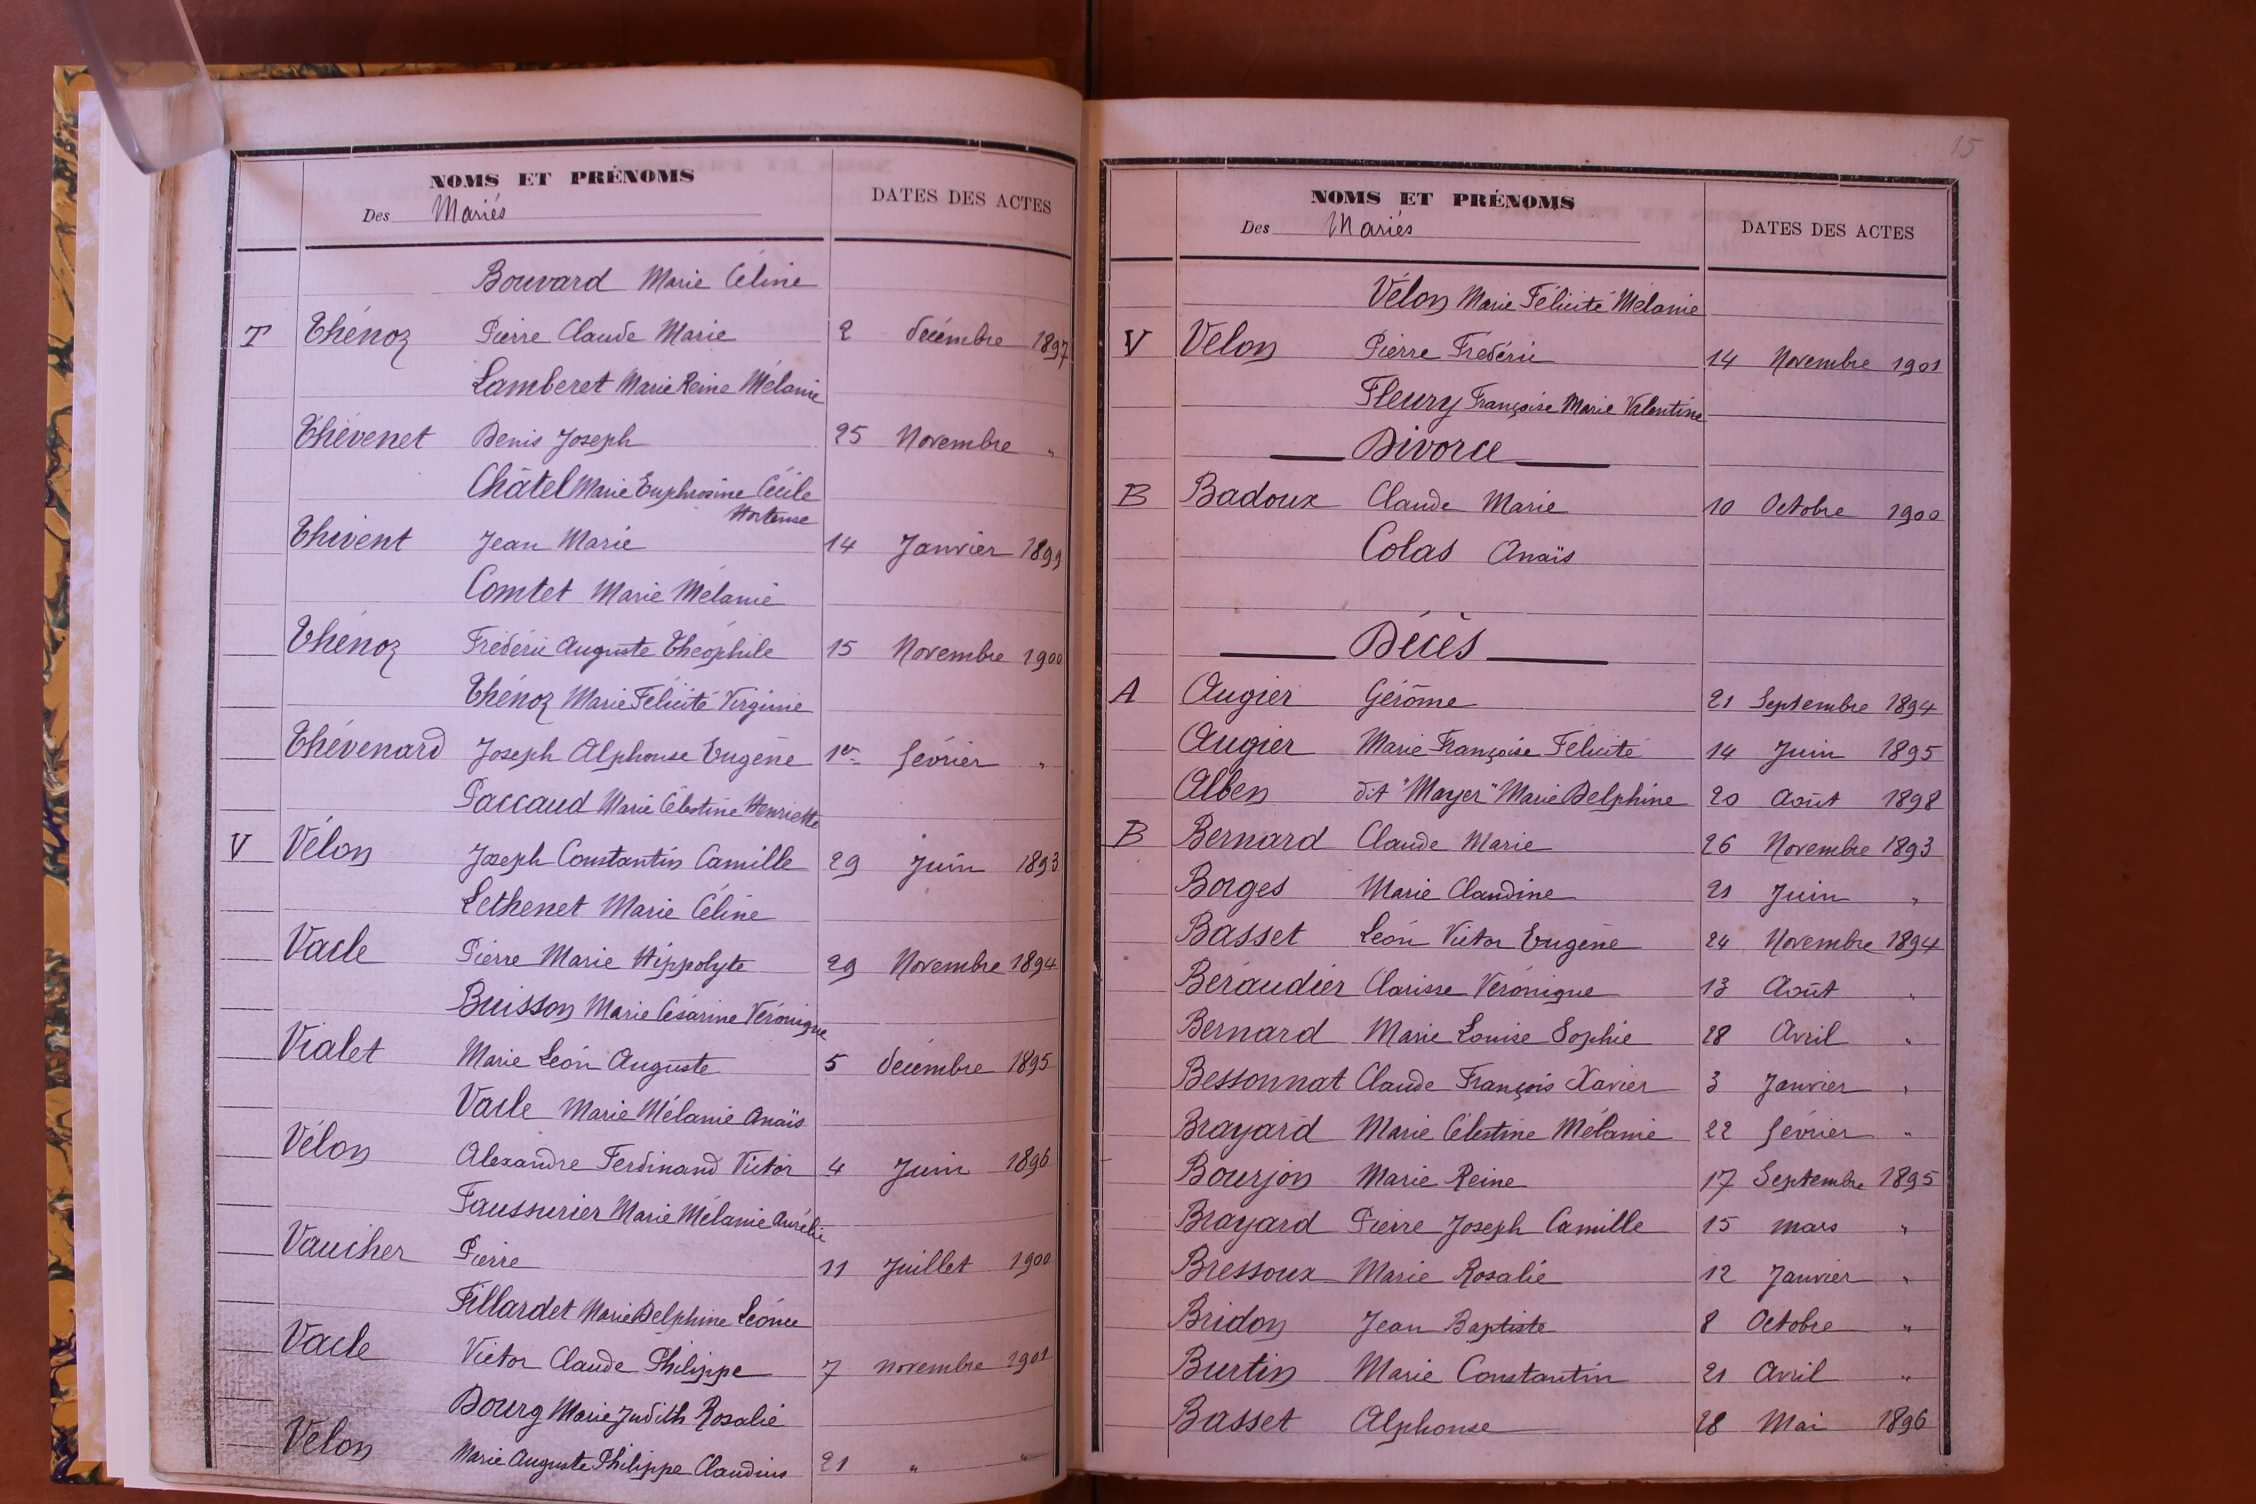 NOMS ET PRÉNOMS
Des Mariés
DATES DES ACTES
Bouvard Marie Céline
T Thénoz Pierre Claude Marie 2 décembre 1897
Lamberet Marie Reine Mélanie
Thévenet Denis Joseph 25 Novembre "
Châtel Marie Euphrosine Cécile
Hortense
Thivent Jean Marie 14 Janvier 1899
Comtet Marie Mélanie
Thénoz Frédéric Auguste Théophile 15 Novembre 1900
Thénoz Marie Félicité Virginie
Thévenard Joseph Alphonse Eugène 1er février "
Paccaud Marie Célestine Henriette
V Vélon Joseph Constantin Camille 29 Juin 1893
Lethenet Marie Céline
Vacle Pierre Marie Hippolyte 29 Novembre 1894
Buisson Marie Césarine Véronique
Vialet Marie Léon Auguste 5 décembre 1895
Vacle Marie Mélanie Anaïs
Vélon Alexandre Ferdinand Victor 4 Juin 1896
Faussurier Marie Mélanie Aurélie
Vaucher Pierre 11 Juillet 1900
Fillardet Marie Delphine Léonie
Vacle Victor Claude Philippe 7 novembre 1901
Dourg Marie Judith Rosalie
Velon Marie Auguste Philippe Claudius 21 " "
15
NOMS ET PRÉNOMS
Des Mariés
DATES DES ACTES
Vélon Marie Félicité Mélanie
V Velon Pierre Frédéric 14 Novembre 1901
Fleury Françoise Marie Valentine
Divorce
B Badoux Claude Marie 10 Octobre 1900
Colas Anaïs
Décès
A Augier Gérôme 21 Septembre 1894
Augier Marie Françoise Félicité 14 Juin 1895
Alben dit "Mayer" Marie Delphine 20 Août 1898
B Bernard Claude Marie 26 Novembre 1893
Borges Marie Claudine 21 Juin "
Basset Léon Victor Eugène 24 Novembre 1894
Béraudier Clarisse Véronique 13 Août "
Bernard Marie Louise Sophie 28 Avril "
Bessonnat Claude François Xavier 3 Janvier "
Brayard Marie Célestine Mélanie 22 février "
Bourjon Marie Reine 17 Septembre 1895
Brayard Pierre Joseph Camille 15 mars "
Bressoux Marie Rosalie 12 Janvier "
Bridon Jean Baptiste 8 Octobre "
Burtin Marie Constantin 21 Avril "
Basset Alphonse 28 Mai 1896